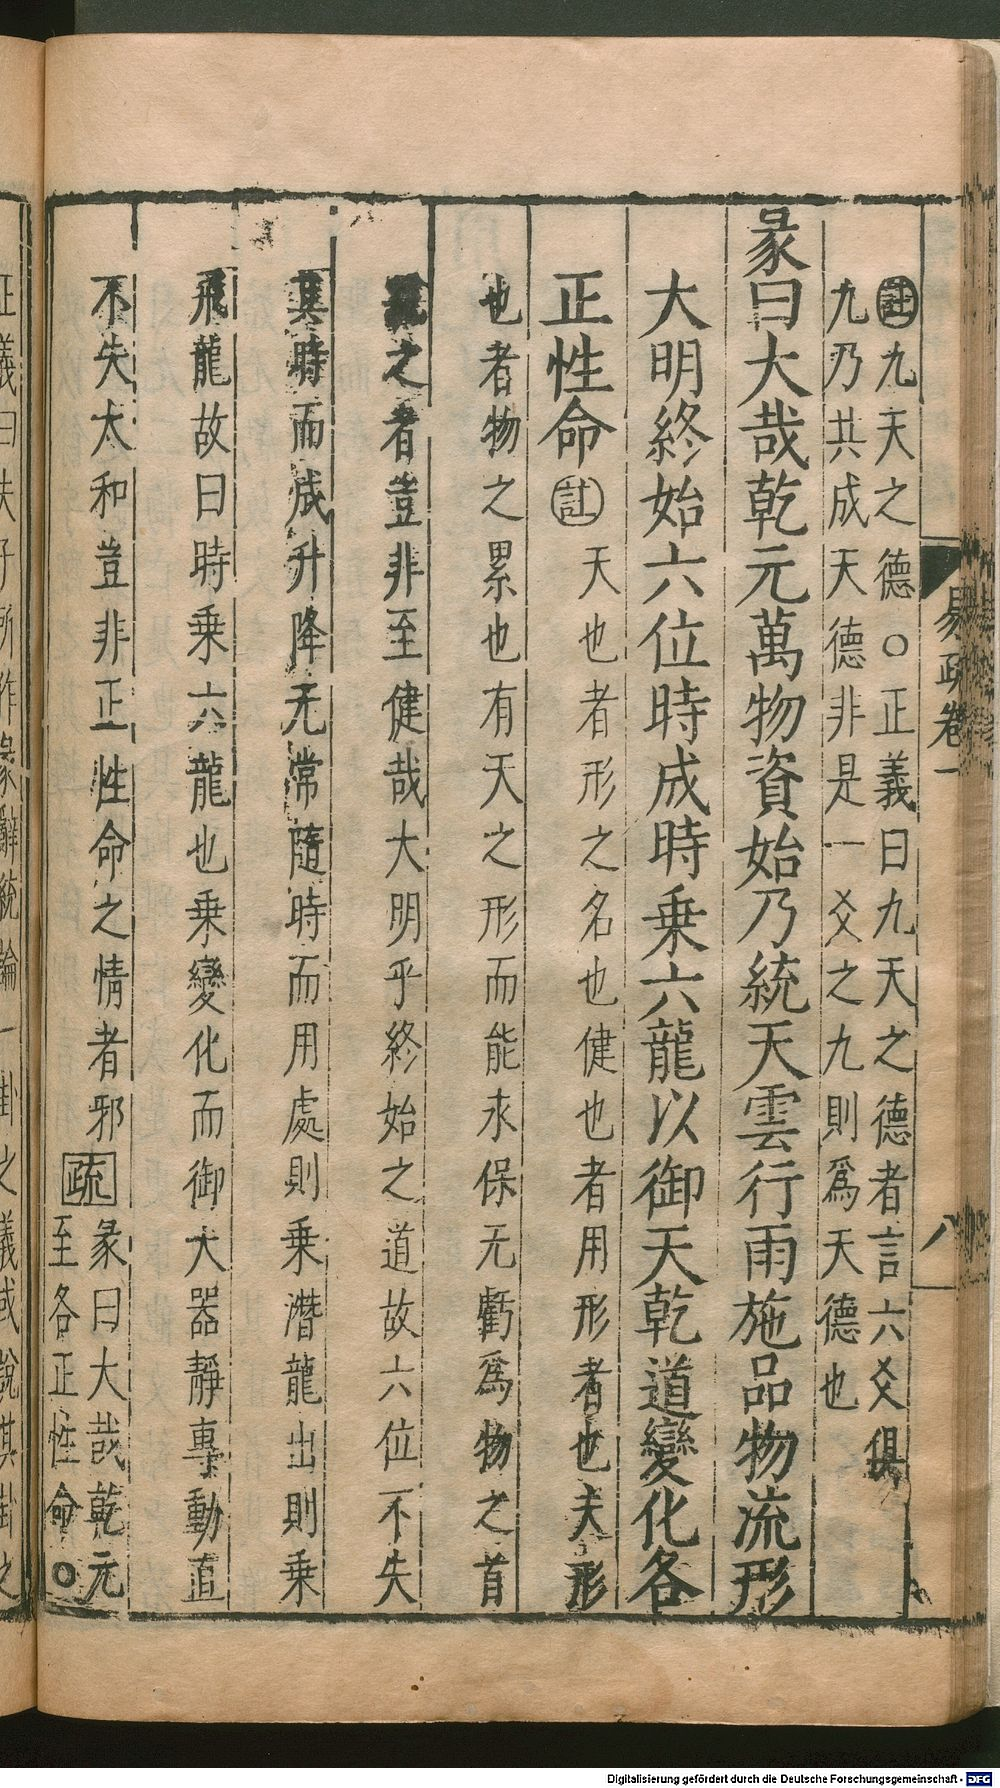 易疏卷一
八
註九天之德○正義曰九天之德者言六爻俱
九乃共成天德非是一爻之九則爲天德也
彖曰大哉乾元萬物資始乃統天雲行雨施品物流形
大明終始六位時成時乗六龍以御天乾道變化各
正性命註天也者形之名也健也者用形者也夫形
也者物之累也有天之形而能永保无虧爲物之首
統之者豈非至健哉大明乎終始之道故六位不失
其時而成升降无常隨時而用處則乗潛龍出則乗
飛龍故曰時乗六龍也乗變化而御大器靜專動直
不失太和豈非正性命之情者邪疏彖曰大哉乾元
至各正性命○
正義曰夫子所作彖辭統論一卦之義或說其卦之
Digitalisierung gefördert durch die Deutsche Forschungsgemeinschaft - DFG